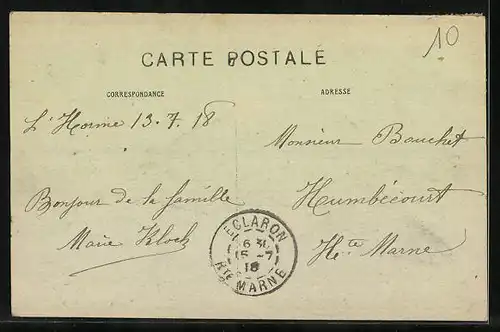 10
CARTE POSTALE
CORRESPONDANCE
ADRESSE
L'Horme 13.7.18
Monsieur Bauchet
Bonjour de la famille
Marie Kloch
Humbécourt
Hte Marne
ECLARON
6 30
15 -7
18
Hte MARNE